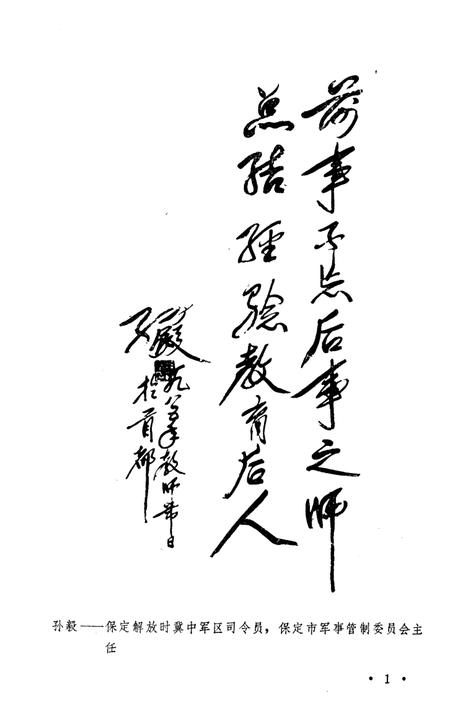 前事不忘后事之师
总结经验教育后人
孙毅
九八八年教师节日
于首都
孙毅——保定解放时冀中军区司令员，保定市军事管制委员会主
任
· 1 ·